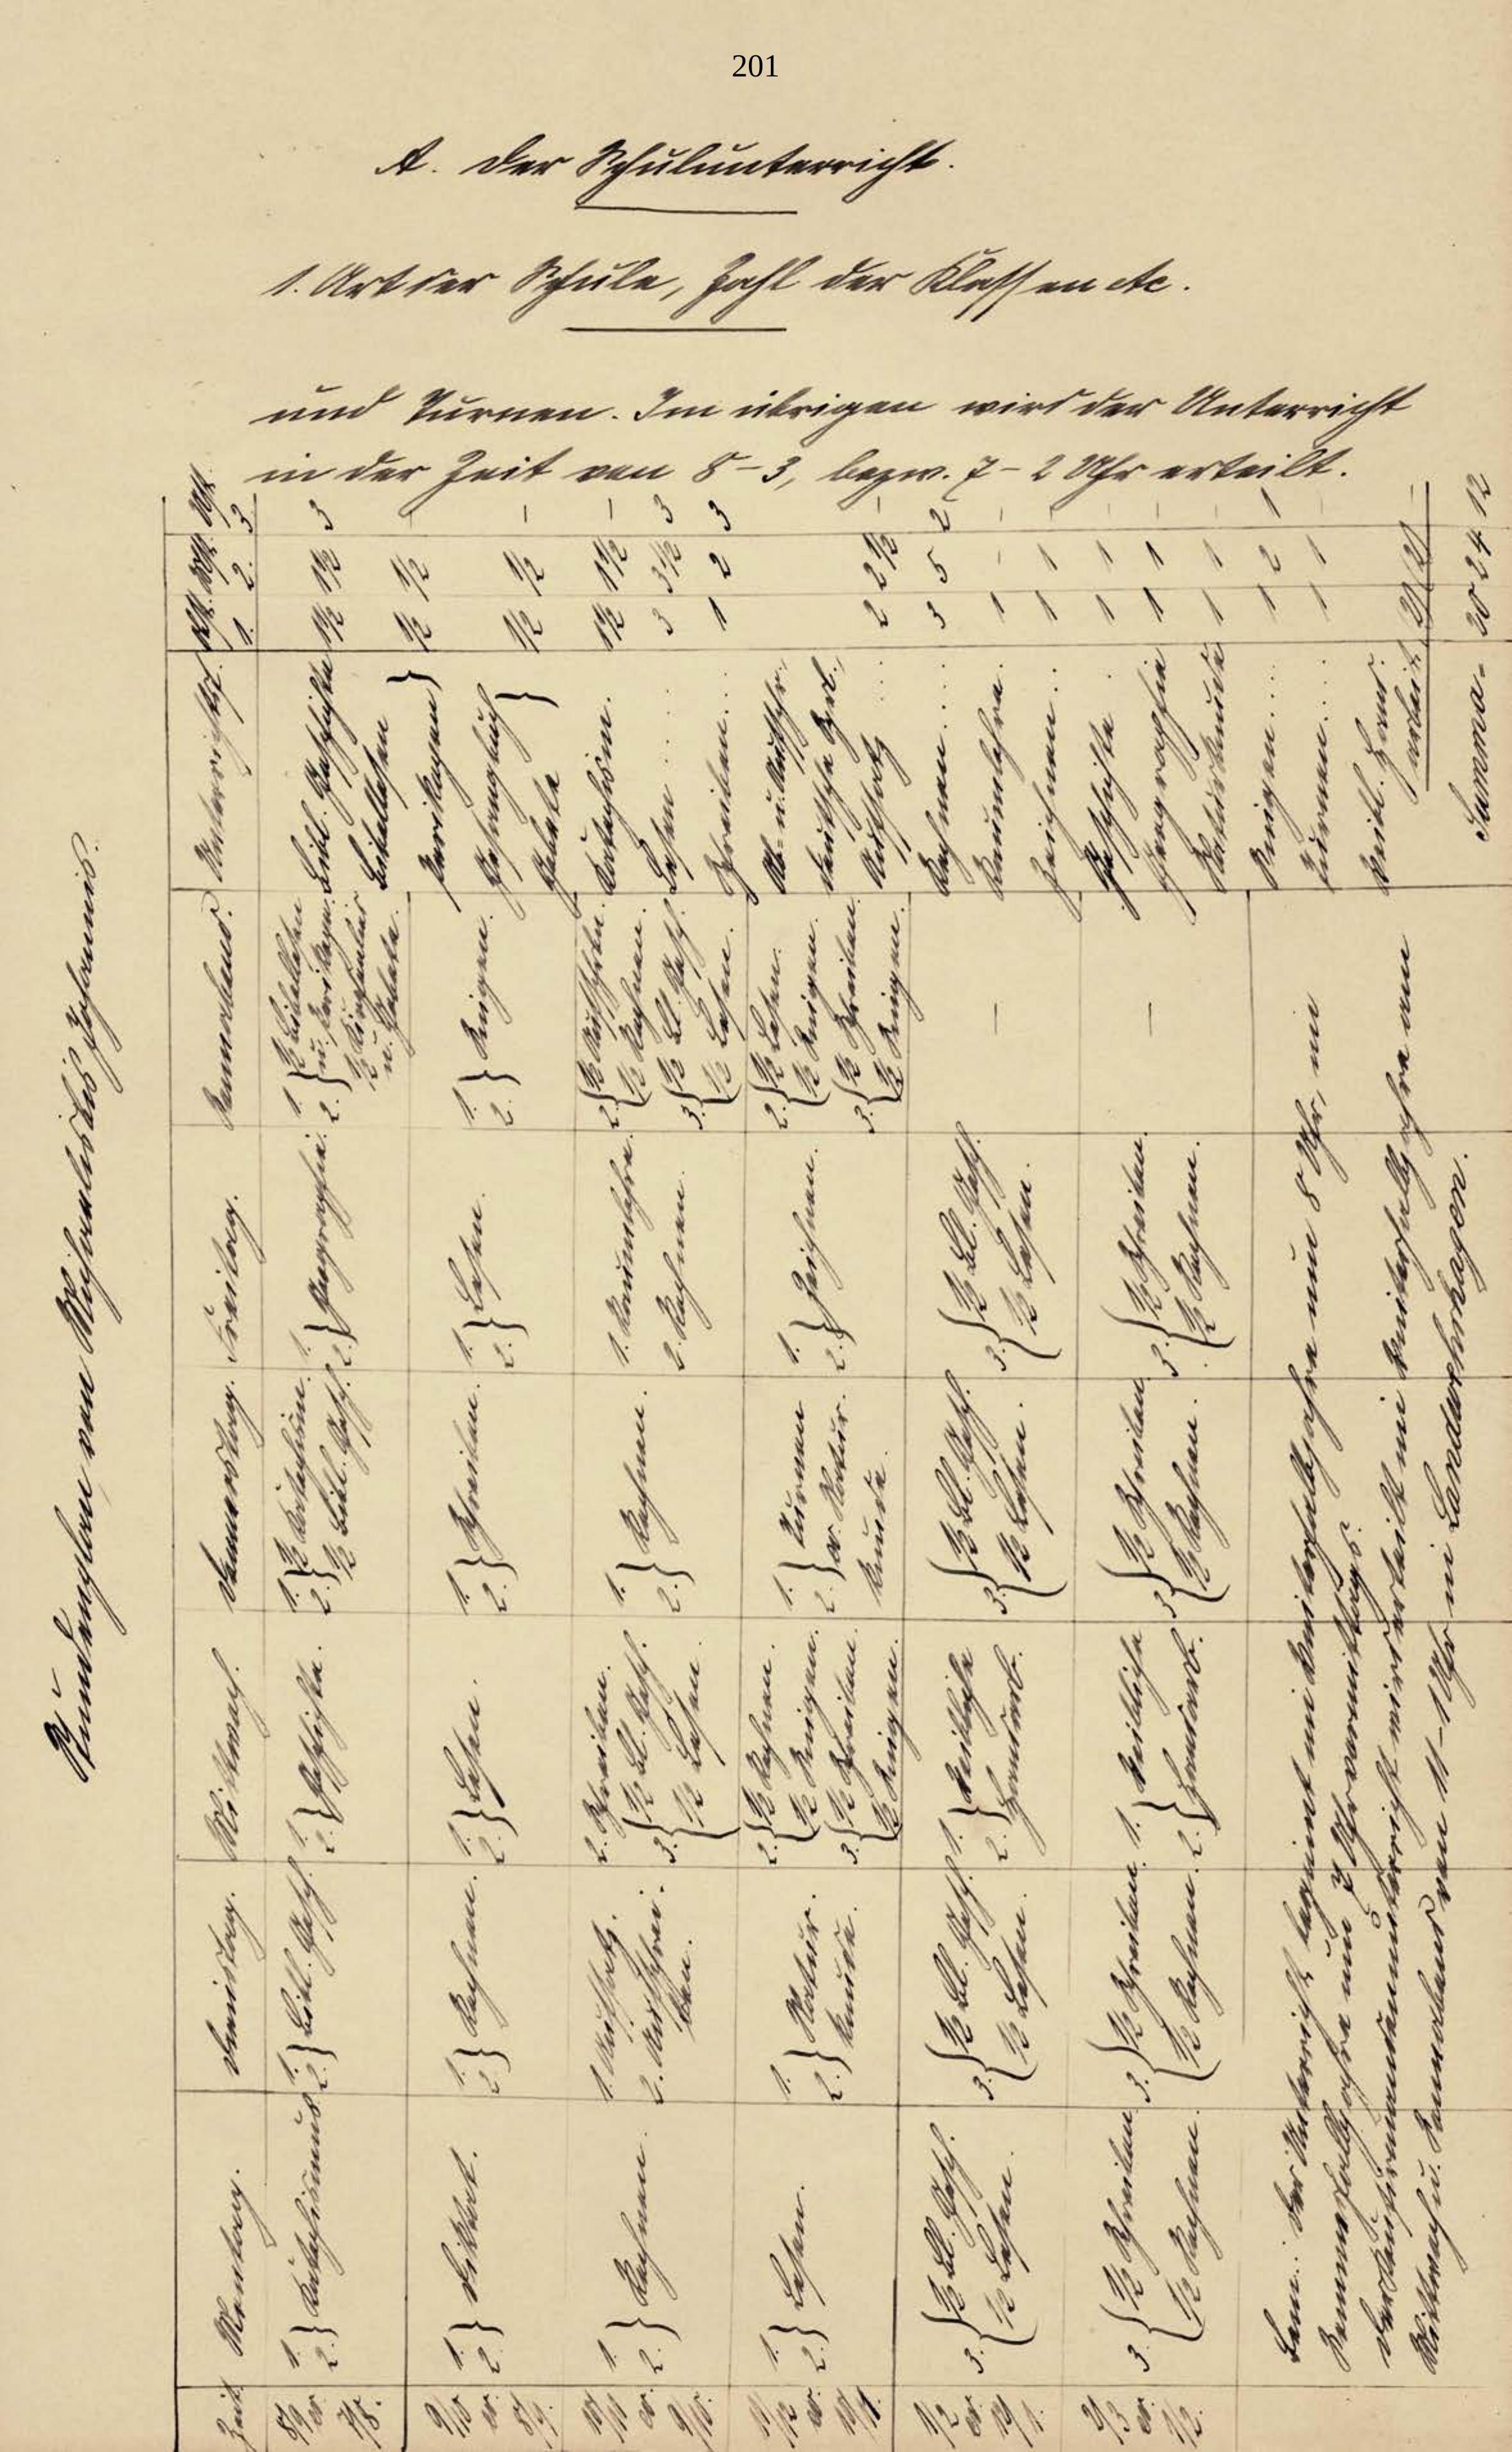 201
A. Der Schulunterricht.
1. Art der Schule, Zahl der Klassen etc.
und Turnen. Im übrigen wird der Unterricht
in der Zeit von 8-3, bezw. 7-2 Uhr erteilt.
Stundenplan von Michaelis bis Johannis.
Zeit. Montag. Dienstag. Mittwoch. Donnerstag. Freitag. Sonnabend.
8/9 od. 7/8.
1. 2. } Katechismus
1. 2. } Bibl. Gesch.
1. 2. } Geschichte.
1. 2. } ½ Katechism. ½ Bibl. Gesch.
1. 2. } Geografie.
1. 2. } ½ Bibellesen u. Perikop. ½ u. Gebete.
9/10 od. 8/9.
1. 2. } Diktat.
1. 2. } Rechnen.
1. 2. } Lesen.
1. 2. } Schreiben.
1. 2. } Lesen.
1. 2. } Singen.
10/11 od. 9/10.
1. 2. } Rechnen.
1. Aufsatz. 2. Abschreiben.
2. Schreiben. 3. { ½ Bl. Gesch. ½ Lesen.
1. 2. } Rechnen.
1. Raumlehre. 2. Rechnen.
2. { ½ Aufschrb. ½ Rechnen. 3. { ½ Bl. Gesch. ½ Lesen.
11/12 od. 10/11.
1. 2. } Lesen.
1. 2. } Naturkunde.
2. { ½ Rechnen. ½ Singen. 3. { ½ Schreiben. ½ Singen.
1. 2. } Turnen od. Naturkunde.
1. 2. } Zeichnen.
2. { ½ Lesen. ½ Singen. 3. { ½ Schreiben. ½ Singen.
1/2 od. 12/1.
3. { ½ Bl. Gesch. ½ Lesen.
3. { ½ Bl. Gesch. ½ Lesen.
1. 2. } Weibliche Handarb.
3. { ½ Bl. Gesch. ½ Lesen.
3. { ½ Bl. Gesch. ½ Lesen.
—
2/3 od. 1/2.
3. { ½ Schreiben ½ Rechnen.
3. { ½ Schreiben. ½ Rechnen.
1. 2. } Weibliche Handarb.
3. { ½ Schreiben ½ Rechnen.
3. { ½ Schreiben. ½ Rechnen.
—
Unterrichtsf. Abt. 1. Abt. 2. Abt. 3.
Bibl. Geschichte 1½ 1½ 3
Bibellesen
Perikopen } ½ ½ -
Gesangbuch
Gebete } ½ ½ -
Katechism. 1½ 1½ -
Lesen 3 3½ 3
Schreiben 1 2 3
Ab- u. Aufschr.,
deutsche Spr.,
Aufsatz 2 2½ -
Rechnen 3 5 2
Raumlehre 1 - -
Zeichnen 1 1 -
Geschichte 1 1 -
Geographie 1 1 -
Naturkunde 1 1 -
Singen 1 2 1
Turnen 1 1 -
Weibl. Handarbeit.
Summa. 20 24 12
Bem.: Der Unterricht beginnt im Winterhalbjahre um 8 Uhr, im
Sommerhalbjahre um 7 Uhr vormittags.
Der Konfirmandenunterricht wird erteilt im Winterhalbjahre am
Mittwoch u. Sonnabend von 11-1 Uhr in Landwehrhagen.